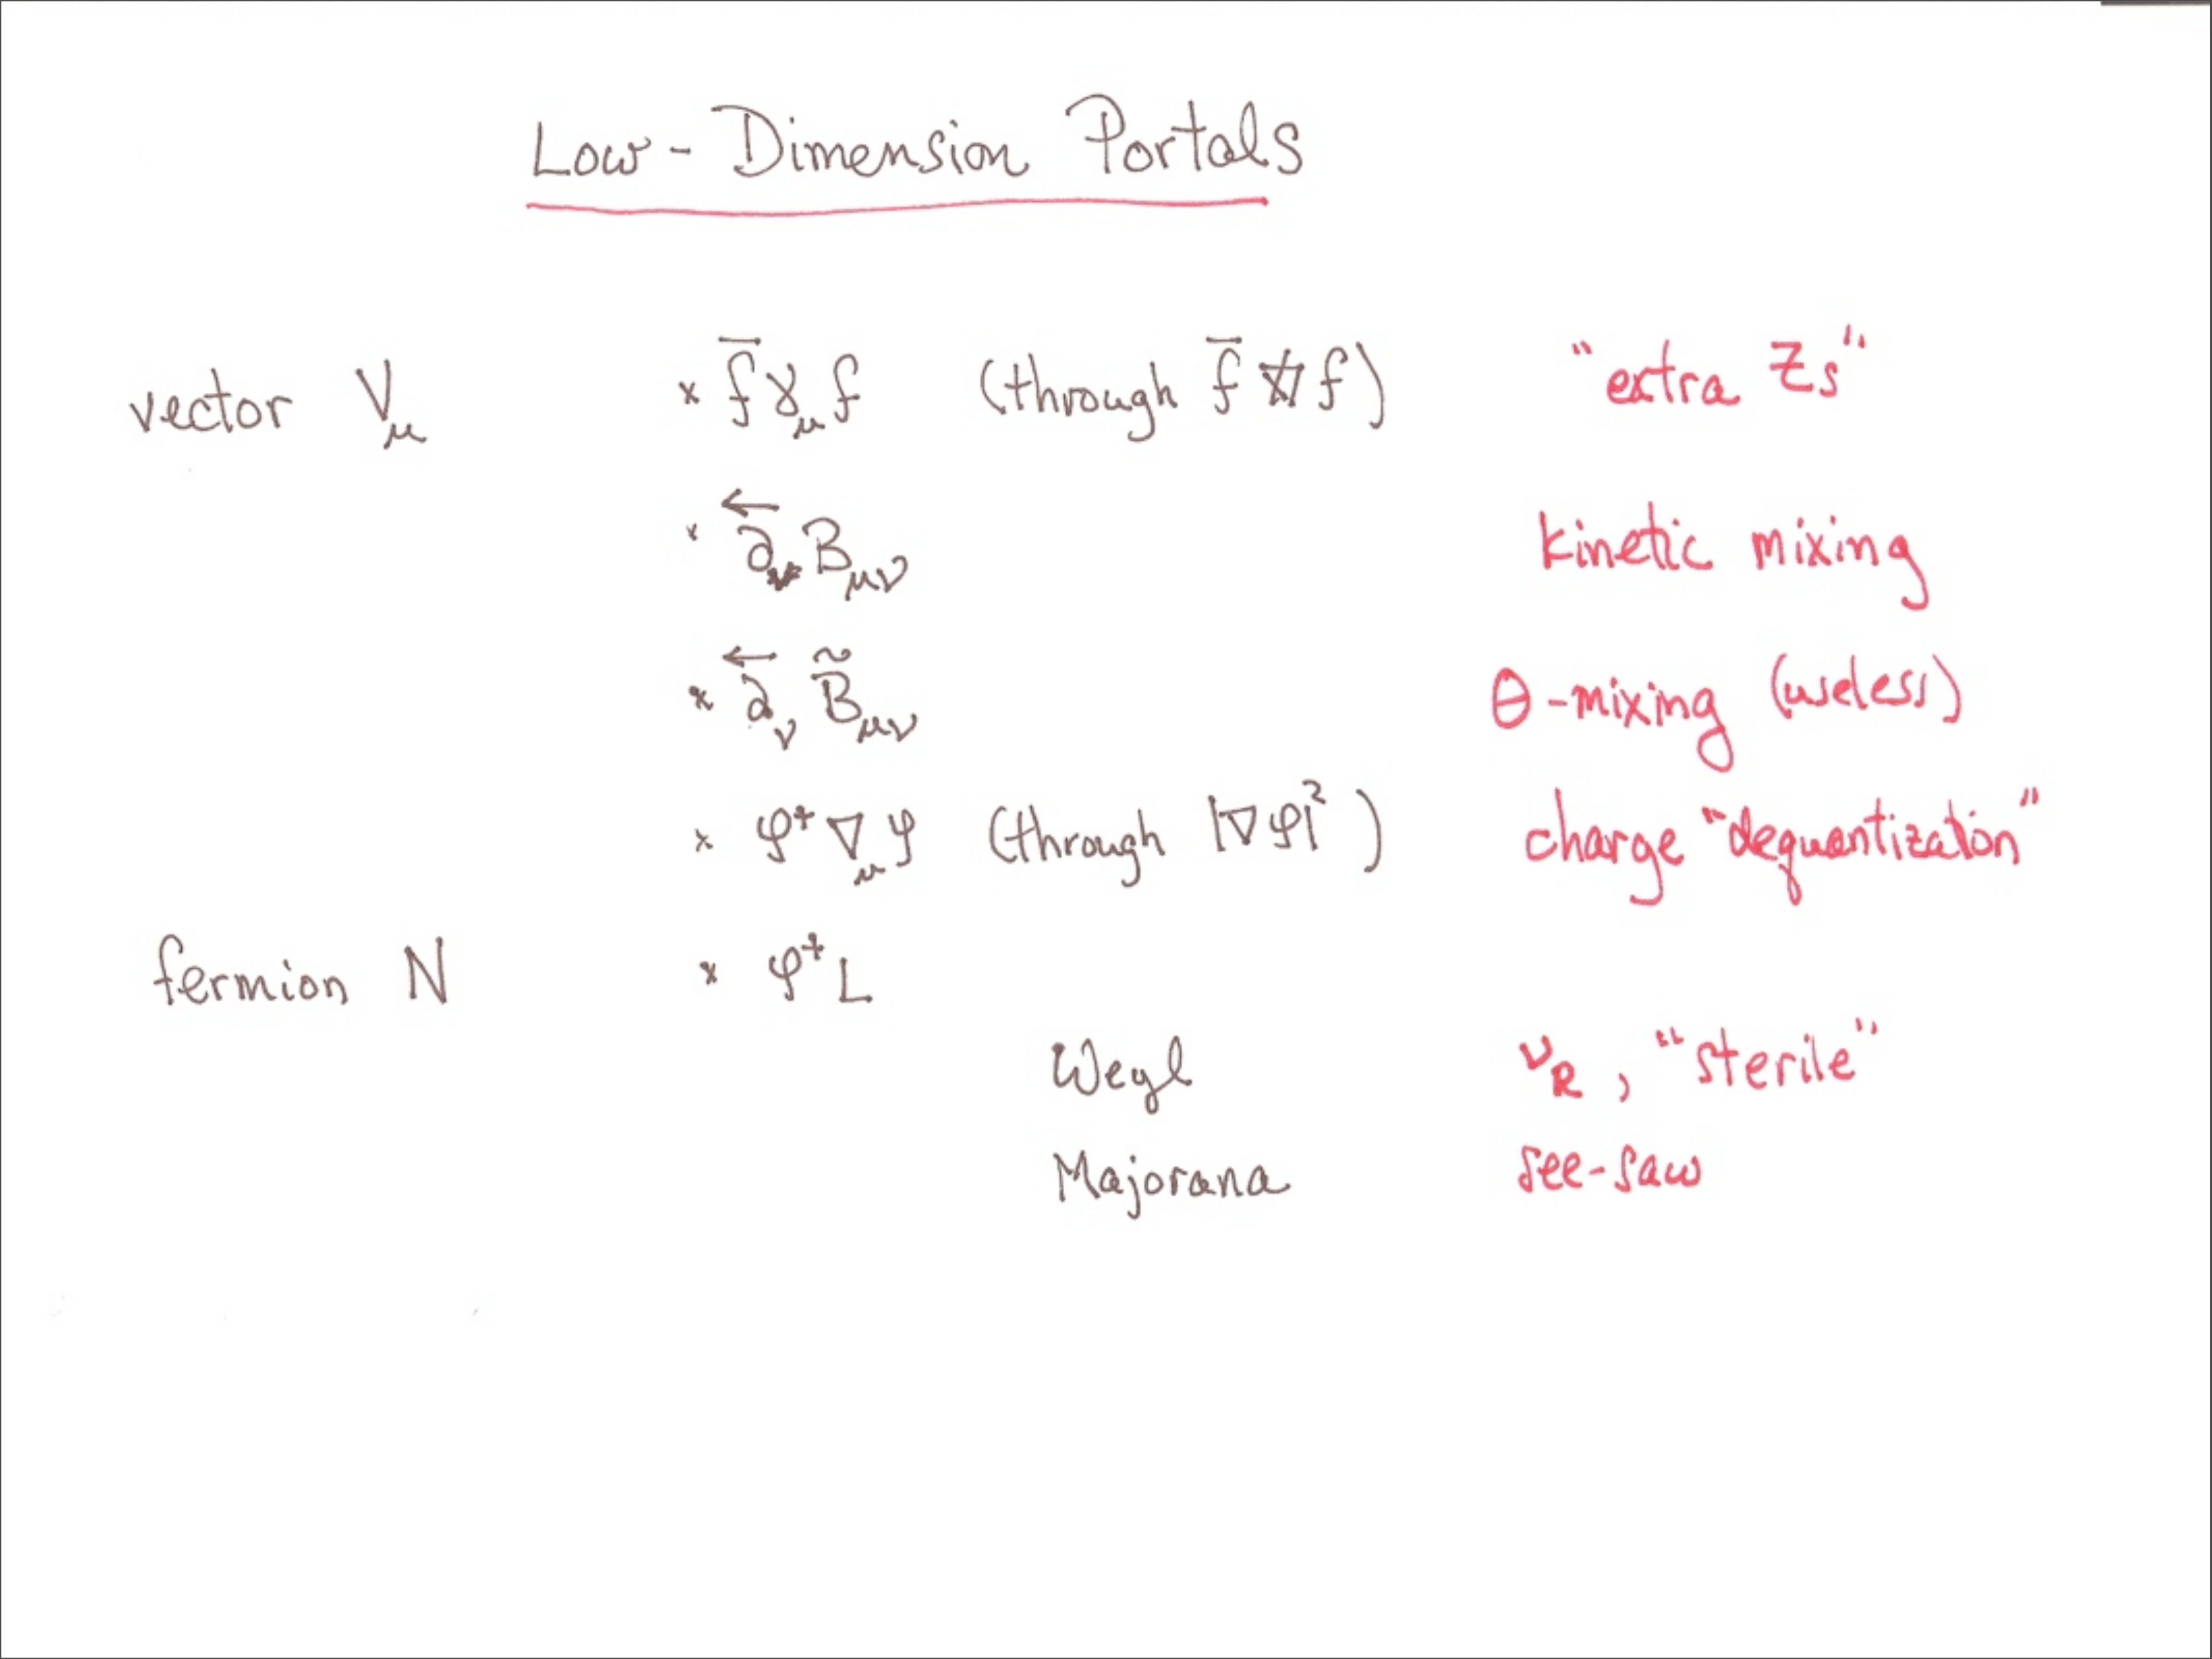 Low-Dimension Portals
vector V_μ × f̄ γ_μ f (through f̄ ∇̸ f) "extra Zs"
× ∂⃖_ν B_μν kinetic mixing
× ∂⃖_ν B̃_μν θ-mixing (useless)
× φ⁺ ∇_μ φ (through |∇φ|²) charge "dequantization"
fermion N × φ⁺ L
Weyl ν_R, "sterile"
Majorana see-saw